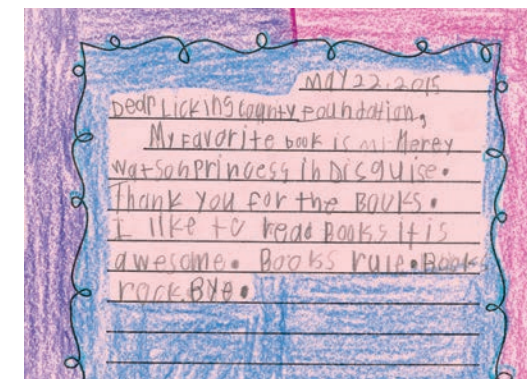 MAY 22, 2015
Dear Licking County Foundation,
My Favorite book is mi Mercy
Watson Princess in Disguise.
Thank you for the Books.
I like to read Books it is
awesome. Books rule. Books
rock BYe.